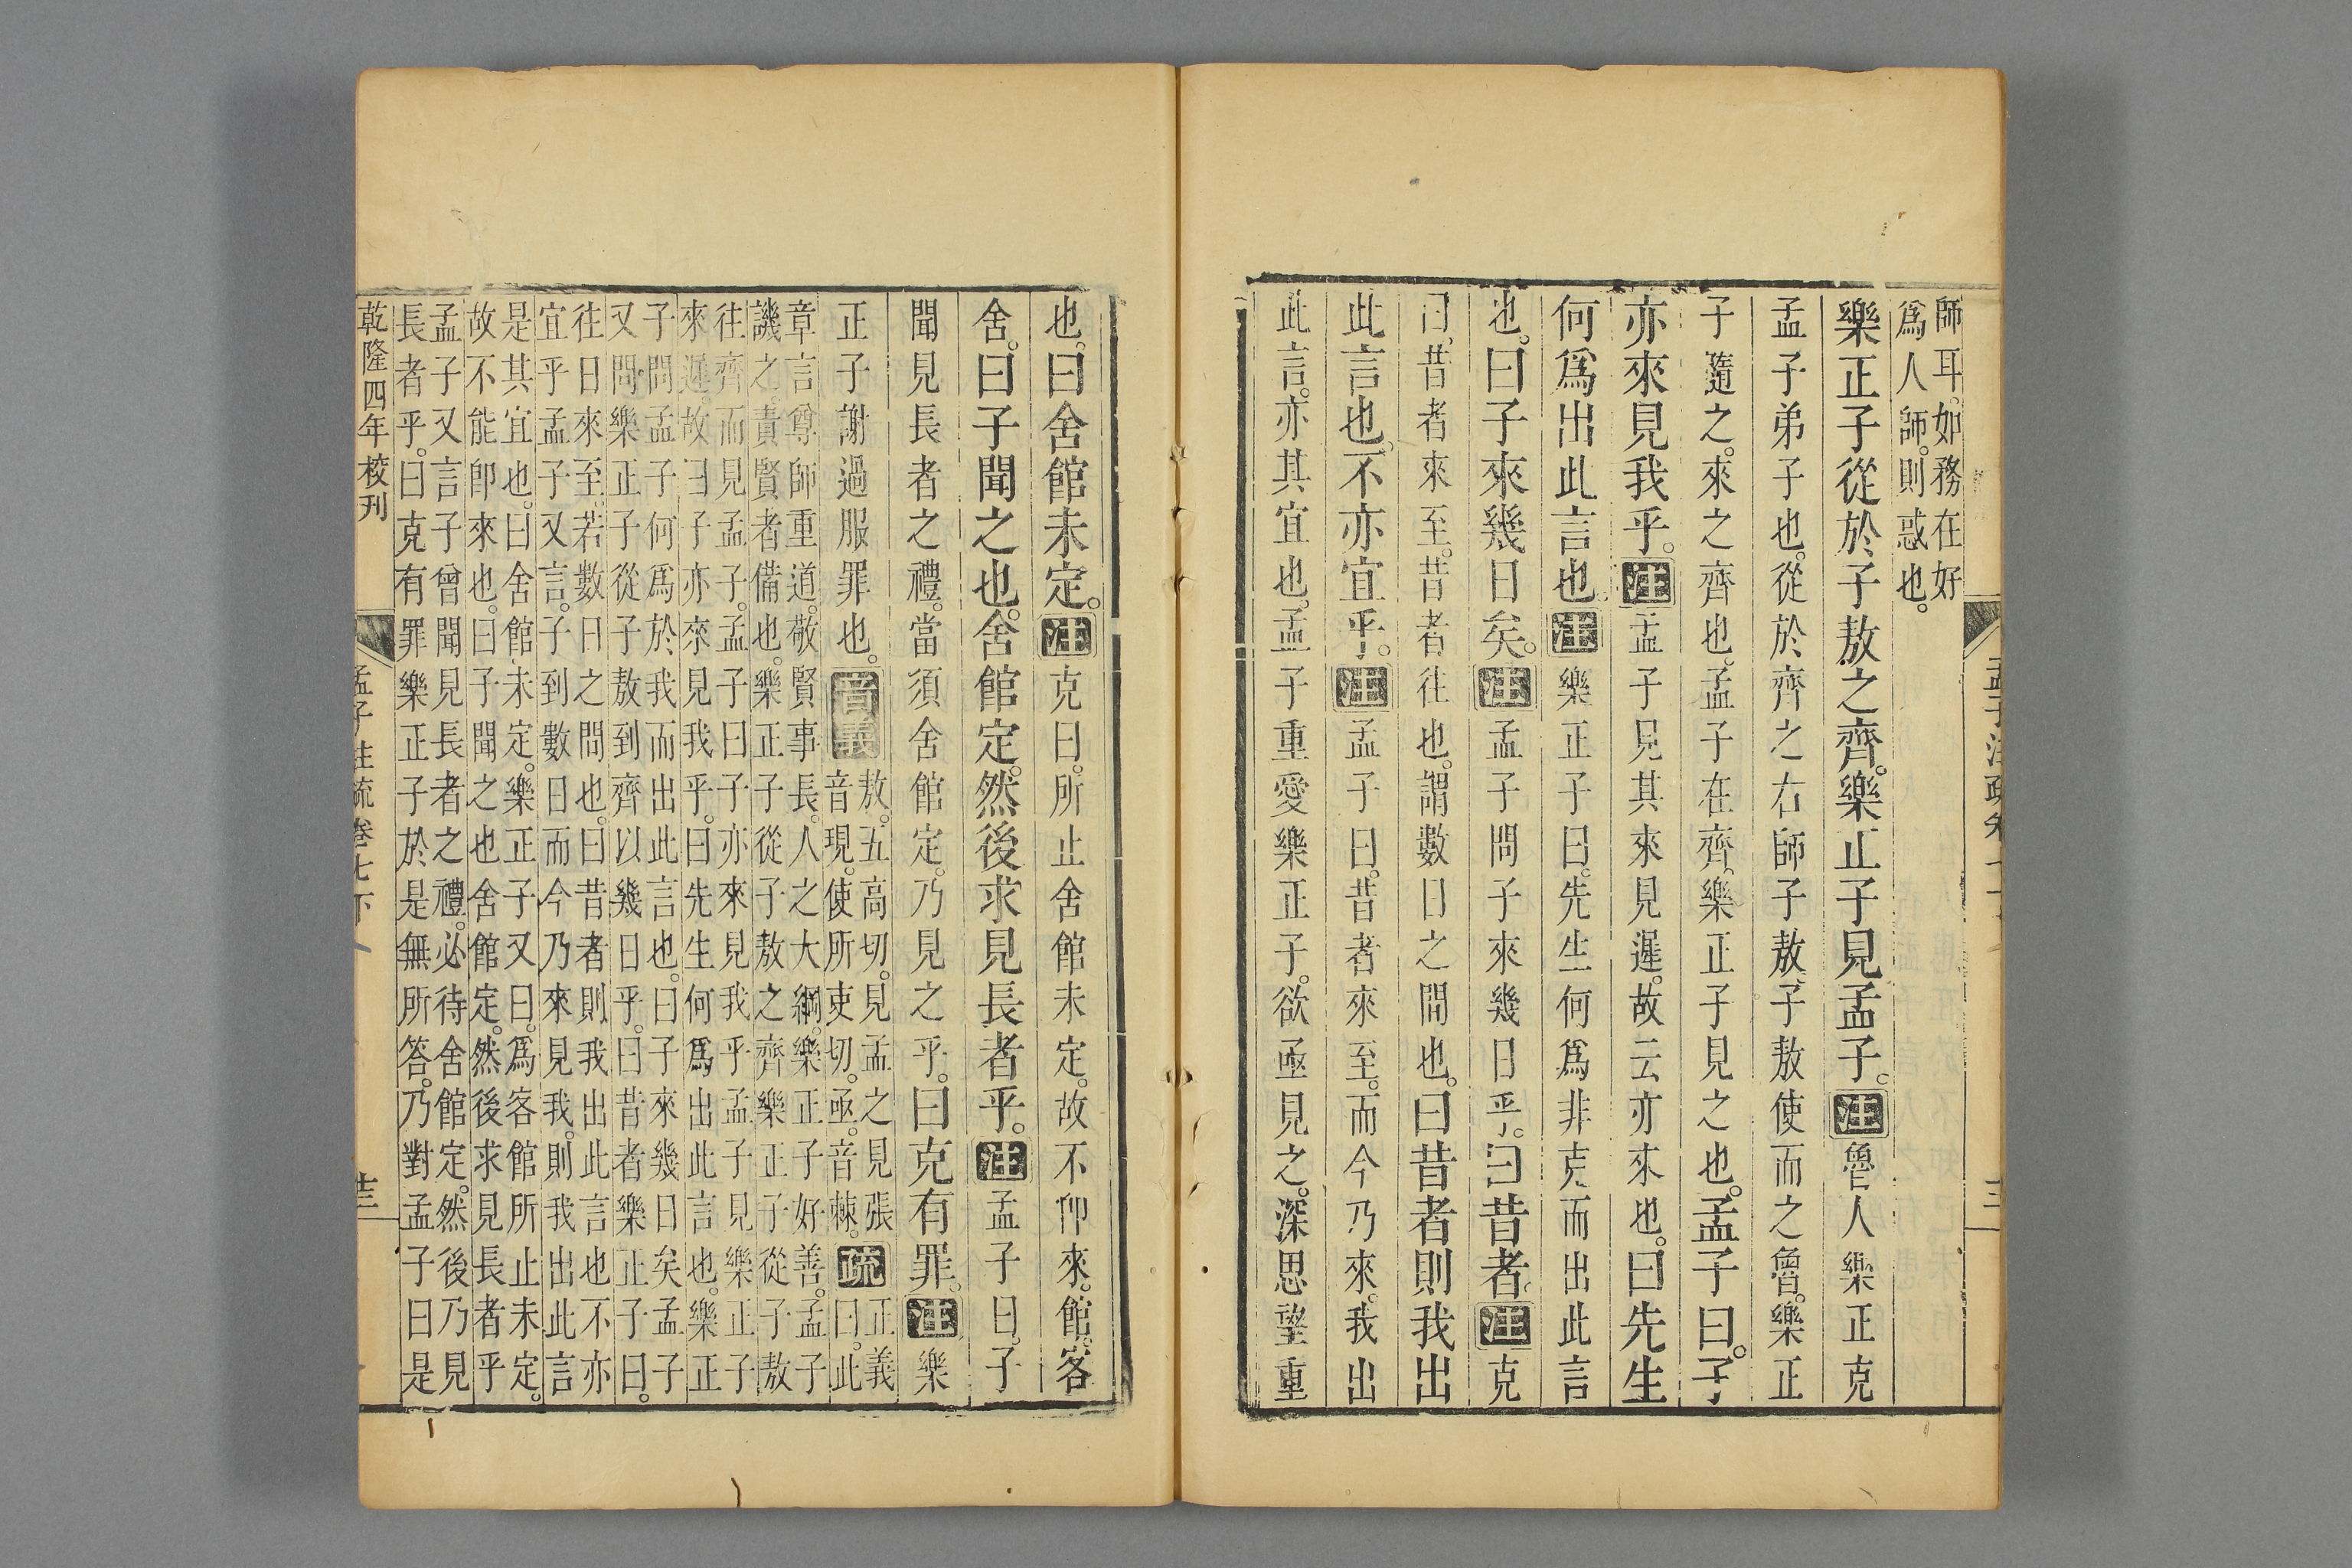 師耳。如務在好
爲人師。則惑也。
樂正子從於子敖之齊。樂正子見孟子。注魯人樂正克
孟子弟子也。從於齊之右師子敖。子敖使而之魯。樂正
子隨之。來之齊也。孟子在齊。樂正子見之也。孟子曰。子
亦來見我乎。注孟子見其來見遲。故云亦來也。曰先生
何爲出此言也。注樂正子曰。先生何爲非克而出此言
也。曰子來幾日矣。注孟子問子來幾日乎。曰昔者。注克
曰。昔者來至。昔者往也。謂數日之間也。曰昔者則我出
此言也。不亦宜乎。注孟子曰。昔者來至。而今乃來。我出
此言。亦其宜也。孟子重愛樂正子。欲亟見之。深思望重
也。曰舍館未定。注克曰。所止舍館未定。故不卽來。館。客
舍。曰子聞之也。舍館定。然後求見長者乎。注孟子曰。子
聞見長者之禮。當須舍館定。乃見之乎。曰克有罪。注樂
正子謝過服罪也。音義敖。五高切。見孟之見張
音現。使所吏切。亟。音棘。疏正義
曰。此
章言尊師重道。敬賢事長。人之大綱。樂正子好善。孟子
譏之。責賢者備也。樂正子從子敖之齊樂正子從子敖
往齊而見孟子。孟子曰子亦來見我乎孟子見樂正子
來遲。故曰子亦來見我乎。曰先生何爲出此言也。樂正
子問孟子何爲於我而出此言也。曰子來幾日矣孟子
又問樂正子從子敖到齊以幾日乎。曰昔者樂正子曰。
往日來至。若數日之間也。曰昔者則我出此言也不亦
宜乎孟子又言。子到數日而今乃來見我。則我出此言
是其宜也。曰舍館未定。樂正子又曰。爲客館所止未定。
故不能卽來也。曰子聞之也舍館定。然後求見長者乎
孟子又言子曾聞見長者之禮。必待舍館定。然後乃見
長者乎。曰克有罪樂正子於是無所答。乃對孟子曰是
乾隆四年校刊
孟子注疏卷七下